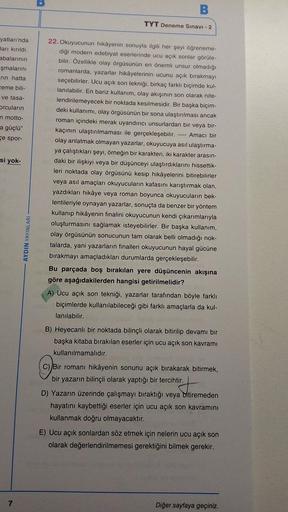 B
B
TYT Deneme Sınavı - 2
yatları'nda
ları kırıldı.
abalarının
şmalarını
rın hatta
reme bili-
ve tasa-
orcuların
n motto-
a güçlü"
çe spor-
si yok-
AYDIN YAYINLARI
22. Okuyucunun hikâyenin sonuyla ilgili her şeyi öğreneme-
diği modern edebiyat eserlerinde ucu açık sonlar görüle-
bilir. Özellikle olay örgüsünün en önemli unsur olmadığı
romanlarda, yazarlar hikâyelerinin ucunu açık bırakmayı
seçebilirler. Ucu açık son tekniği, birkaç farklı biçimde kul-
lanılabilir. En bariz kullanım, olay akışının son olarak nite-
lendirilemeyecek bir noktada kesilmesidir. Bir başka biçim-
deki kullanımı, olay örgüsünün bir sona ulaştırılması ancak
roman içindeki merak uyandırıcı unsurlardan bir veya bir-
kaçının ulaştırılmaması ile gerçekleşebilir. ---- Amacı bir
olay anlatmak olmayan yazarlar, okuyucuya asıl ulaştırma-
ya çalıştıkları şeyi, örneğin bir karakteri, iki karakter arasın-
daki bir ilişkiyi veya bir düşünceyi ulaştırdıklarını hissettik-
leri noktada olay örgüsünü kesip hikâyelerini bitirebilirler
veya asıl amaçları okuyucuların kafasını karıştırmak olan,
yazdıkları hikâye veya roman boyunca okuyucuların bek-
lentileriyle oynayan yazarlar, sonuçta da benzer bir yöntem
kullanıp hikâyenin finalini okuyucunun kendi çıkarımlarıyla
oluşturmasını sağlamak isteyebilirler. Bir başka kullanım,
olay örgüsünün sonucunun tam olarak belli olmadığı nok-
talarda, yani yazarların finalleri okuyucunun hayal gücüne
bırakmayı amaçladıkları durumlarda gerçekleşebilir.
Bu parçada boş bırakılan yere düşüncenin akışına
göre aşağıdakilerden hangisi getirilmelidir?
A) Ucu açık son tekniği, yazarlar tarafından böyle farklı
biçimlerde kullanılabileceği gibi farklı amaçlarla da kul-
lanılabilir.
B) Heyecanlı bir noktada bilinçli olarak bitirilip devamı bir
başka kitaba bırakılan eserler için ucu açık son kavramı
kullanılmamalıdır.
C) Bir romanı hikâyenin sonunu açık bırakarak bitirmek,
bir yazarın bilinçli olarak yaptığı bir tercihtir.
D) Yazarın üzerinde çalışmayı bıraktığı veya bitiremeden
hayatını kaybettiği eserler için ucu açık son kavramını
kullanmak doğru olmayacaktır.
E) Ucu açık sonlardan söz etmek için nelerin ucu açık son
olarak değerlendirilmemesi gerektiğini bilmek gerekir.
7
Diğer sayfaya geçiniz.